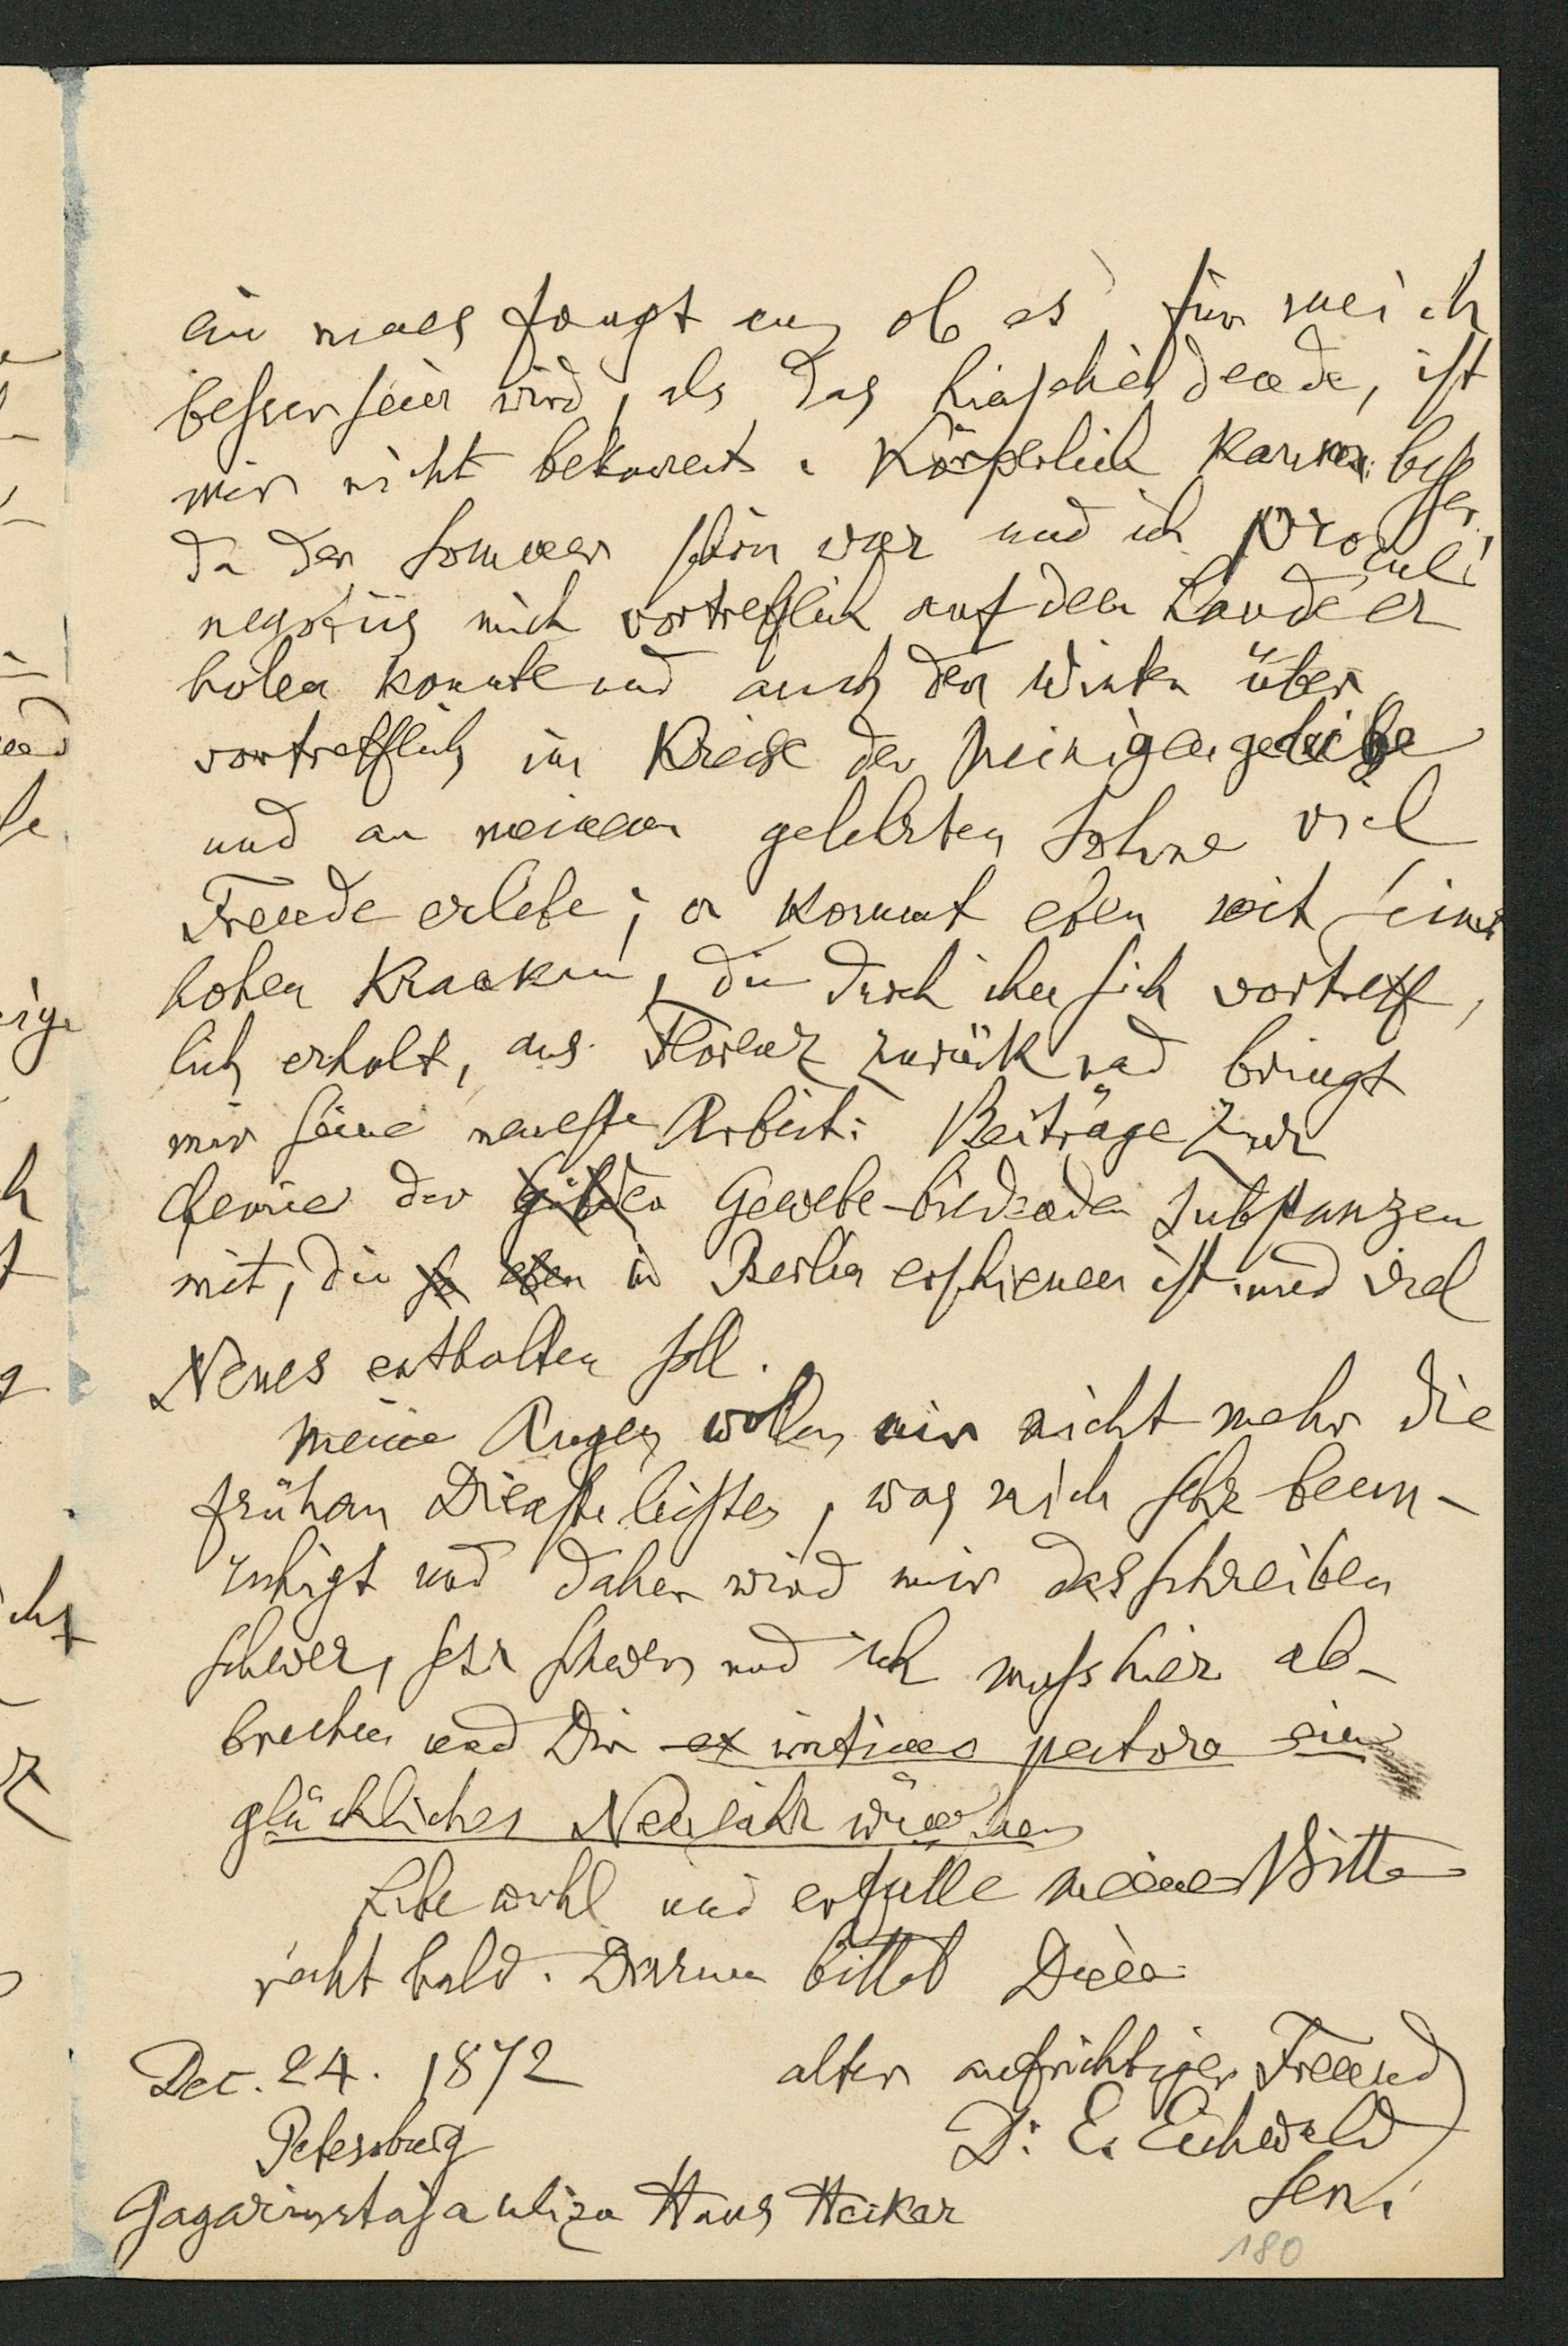 ein neues fängt an, ob es für mich
besser sein wird, als das hinscheidende, ist
mir nicht bekannt. Körperlich kann besser,
da der Sommer schön war und ich procul
negotiis mich vortrefflich auf dem Lande er
holen konnte und auch den Winter über
vortrefflich im Kreise der Meinigen gedeihe
und an meinem gelehrten Sohne viel
Freude erlebe; er kommt eben mit seiner
hohen Kranken, die durch ihn sich vortreff,
lich erholt, aus Florenz zurück und bringt
mir seine neueste Arbeit: Beiträge zur
Chemie der Gewebe-bildenden Substanzen
mit, die so eben in Berlin erschienen ist und viel
Neues enthalten soll.
Meine Augen wollen mir nicht mehr die
frühern Dienste leisten, was mich sehr beun-
ruhigt und daher wird mir das Schreiben
schwer, sehr schwer und ich muss hier ab-
brechen und Dir ex intimo pectore ein
glückliches Neujahr wünschen
Lebe wohl und erfülle meine Bitte
recht bald. Darum bittet Dein
Dec. 24. 1872 alter aufrichtiger Freund
Petersburg Dr. E. Eichwald
Gagarinskaja uliza Haus Heiker Sen.
180